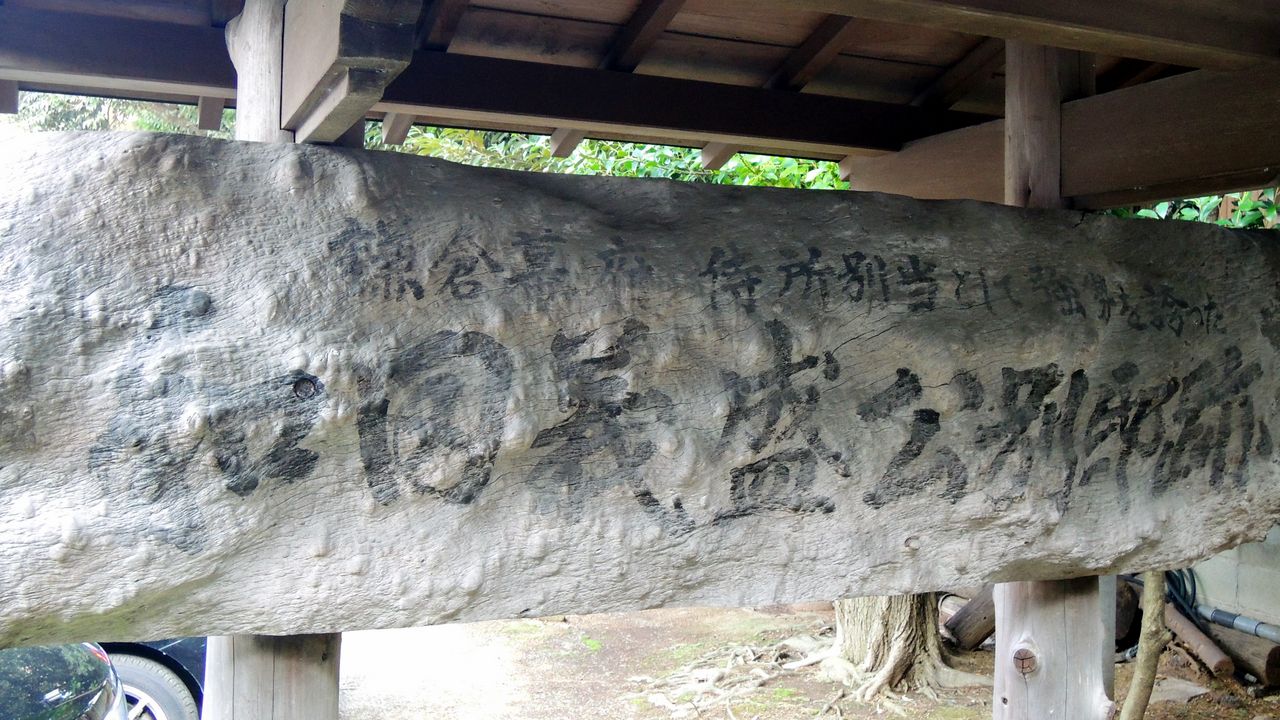 鎌倉幕府 侍所別当として勢を誇った
和田義盛公別邸跡